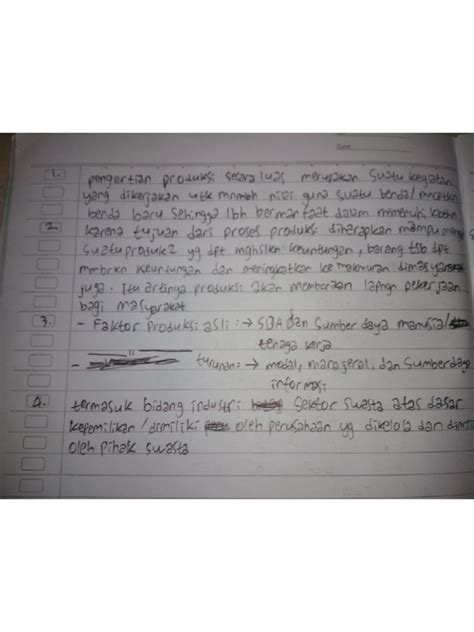 Date:
1. pengertian produksi secara luas merupakan suatu kegiatan
yang dikerjakan utk mnmbh nilai guna suatu benda/
benda baru sehingga lbh bermanfaat dalam
2. karena tujuan dari proses produksi diharapkan mampu
suatu produk2 yg dpt mghslkn keuntungan, barang tsb dpt
mmbrkn keuntungan dan meningkatkan kemakmuran dimasyarakat
juga. itu artinya produksi akan memberikan lapngn pekerjaan
bagi masyarakat
3. - Faktor produksi asli : → SDA dan sumber daya manusia/
tenaga kerja
- " turunan : → modal, manajerial, dan sumberdaya
informasi
4. termasuk bidang industri sektor swasta atas dasar
kepemilikan/dimiliki oleh perusahaan yg dikelola dan
oleh pihak swasta